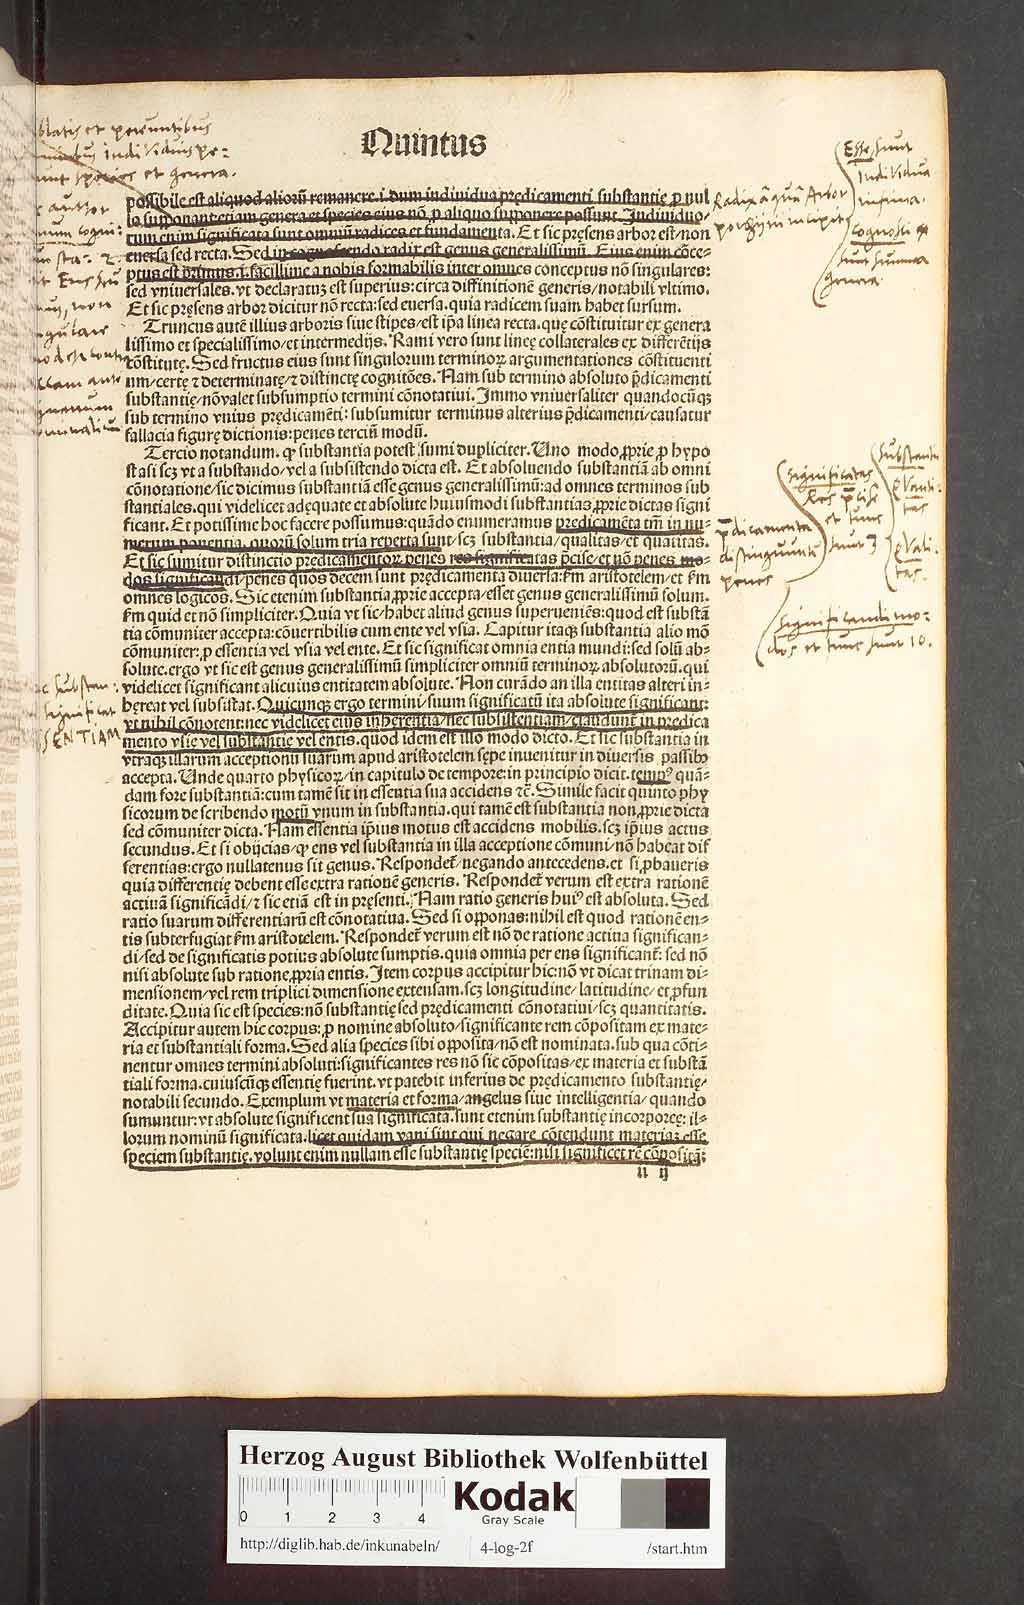 Quintus
possibile est aliquod aliorū remanere.i.dum indiuidua prędicamenti substantię ꝓ nul
lo supponant etiam genera et species eius nō ꝓ aliquo supponere possunt. Indiuiduo⸗
rum enim significata sunt omniū radices et fundamenta. Et sic pręsens arbor est/non
euersa sed recta. Sed in cognoscendo radix est genus generalissimū. Eius enim cōce⸗
ptus est primus.i.facillime a nobis formabilis inter omnes conceptus nō singulares:
sed vniuersales. vt declaratuȝ est superius: circa diffinitionē generis/notabili vltimo.
Et sic pręsens arbor dicitur nō recta: sed euersa. quia radicem suam habet sursum.
Truncus autē illius arboris siue stipes/est ip̄a linea recta. quę cōstituitur ex genera
lissimo et specialissimo/et intermedijs. Rami vero sunt lineę collaterales ex differētijs
cōstitutę. Sed fructus eius sunt singulorum terminoꝝ argumentationes cōstituenti
um/certę ⁊ determinatę/⁊ distinctę cognitōes. Nam sub termino absoluto p̄dicamenti
substantię/nō valet subsumptio termini cōnotatiui. Immo vniuersaliter quandocūqȝ
sub termino vnius prędicamēti: subsumitur terminus alterius p̄dicamenti/causatur
fallacia figurę dictionis: penes terciū modū.
Tercio notandum. ꝙ substantia potest sumi dupliciter. Uno modo ꝓprie ꝓ hypo
stasi scȝ vt a substando/vel a subsistendo dicta est. Et absoluendo substantiā ab omni
cōnotatione/sic dicimus substantiā esse genus generalissimū: ad omnes terminos sub
stantiales. qui videlicet adequate et absolute huiusmodi substantias ꝓprie dictas signi
ficant. Et potissime hoc facere possumus: quādo enumeramus predicamēta tm̄ in nu⸗
merum ponentia. quorū solum tria reperta sunt/scȝ substantia/qualitas/et quātitas.
Et sic sumitur distinctio predicamentoꝝ penes res significatas p̄cise/et nō penes mo⸗
dos significandi/penes quos decem sunt prędicamenta diuersa: ẜm aristotelem/et ẜm
omnes logicos. Sic etenim substantia ꝓprie accepta/esset genus generalissimū solum.
ẜm quid et nō simpliciter. Quia vt sic/habet aliud genus superueniēs: quod est substā
tia cōmuniter accepta: cōuertibilis cum ente vel vsia. Capitur itaqȝ substantia alio mō
cōmuniter: ꝓ essentia vel vsia vel ente. Et sic significat omnia entia mundi: sed solū ab⸗
solute. ergo vt sic est genus generalissimū simpliciter omniū terminoꝝ absolutorū. qui
videlicet significant alicuius entitatem absolute. Non curādo an illa entitas alteri in⸗
hęreat vel subsistat. Quicunqȝ ergo termini/suum significatū ita absolute significant:
vt nihil cōnotent: nec videlicet eius inherentia/nec subsistentiam/claudunt̄ in predica
mento vsie vel substantię vel entis. quod idem est illo modo dicto. Et sic substantia in
vtraqȝ illarum acceptionū suarum apud aristotelem sępe inuenitur in diuersis passibꝰ
accepta. Unde quarto physicoꝝ/in capitulo de tempore: in principio dicit. tempꝰ quā⸗
dam fore substantiā: cum tamē sit in essentia sua accidens ⁊c̄. Simile facit quinto phy
sicorum de scribendo motū vnum in substantia. qui tamē est substantia non ꝓprie dicta
sed cōmuniter dicta. Nam essentia ip̄ius motus est accidens mobilis. scȝ ip̄ius actus
secundus. Et si obijcias/ꝙ ens vel substantia in illa acceptione cōmuni/nō habeat dif
ferentias: ergo nullatenus sit genus. Respondet̄/negando antecedens. et si ꝓbaueris
quia differentię debent esse extra rationē generis. Respondet̄ verum est extra rationē
actiuā significādi/⁊ sic etiā est in pręsenti. Nam ratio generis huiꝰ est absoluta. Sed
ratio suarum differentiarū est cōnotatiua. Sed si opponas: nihil est quod rationē en⸗
tis subterfugiat ẜm aristotelem. Respondet̄ verum est nō de ratione actiua significan⸗
di/sed de significatis potius absolute sumptis. quia omnia per ens significant̄: sed nō
nisi absolute sub ratione ꝓpria entis. Item corpus accipitur hic: nō vt dicat trinam di⸗
mensionem/vel rem triplici dimensione extensam. scȝ longitudine/latitudine/et ꝓfun
ditate. Quia sic est species: nō substantię sed prędicamenti cōnotatiui/scȝ quantitatis.
Accipitur autem hic corpus: ꝓ nomine absoluto/significante rem cōpositam ex mate⸗
ria et substantiali forma. Sed alia species sibi opposita/nō est nominata. sub qua cōti⸗
nentur omnes termini absoluti: significantes res nō sic cōpositas/ex materia et substā
tiali forma. cuiuscūqȝ essentię fuerint. vt patebit inferius de prędicamento substantię/
notabili secundo. Exemplum vt materia et forma/angelus siue intelligentia/quando
sumuntur: vt absolute significent sua significata. sunt etenim substantię incorporeę: il⸗
lorum nominū significata. licet quidam vani sint qui negare cōtendunt materiaȝ esse
speciem substantię. volunt enim nullam esse substantię speciē: nisi significet rē cōpositā:
ıı ıȷ
blatis et pereuntibus
indiuiduis pe⸗
runt species et genera.
author
SENTIAM
Esse sunt
indiuidua
infima.
Radix
Arbor
genera
Substantia
quanti⸗
tas
quali⸗
tas.
significatas
res
et tunc
sunt 3
p̄dicamenta
distinguuntur
penes
significandi mo⸗
dos et tunc sunt 10.
Herzog August Bibliothek Wolfenbüttel
0 1 2 3 4
Kodak
Gray Scale
http://diglib.hab.de/inkunabeln/ 4-log-2f /start.htm